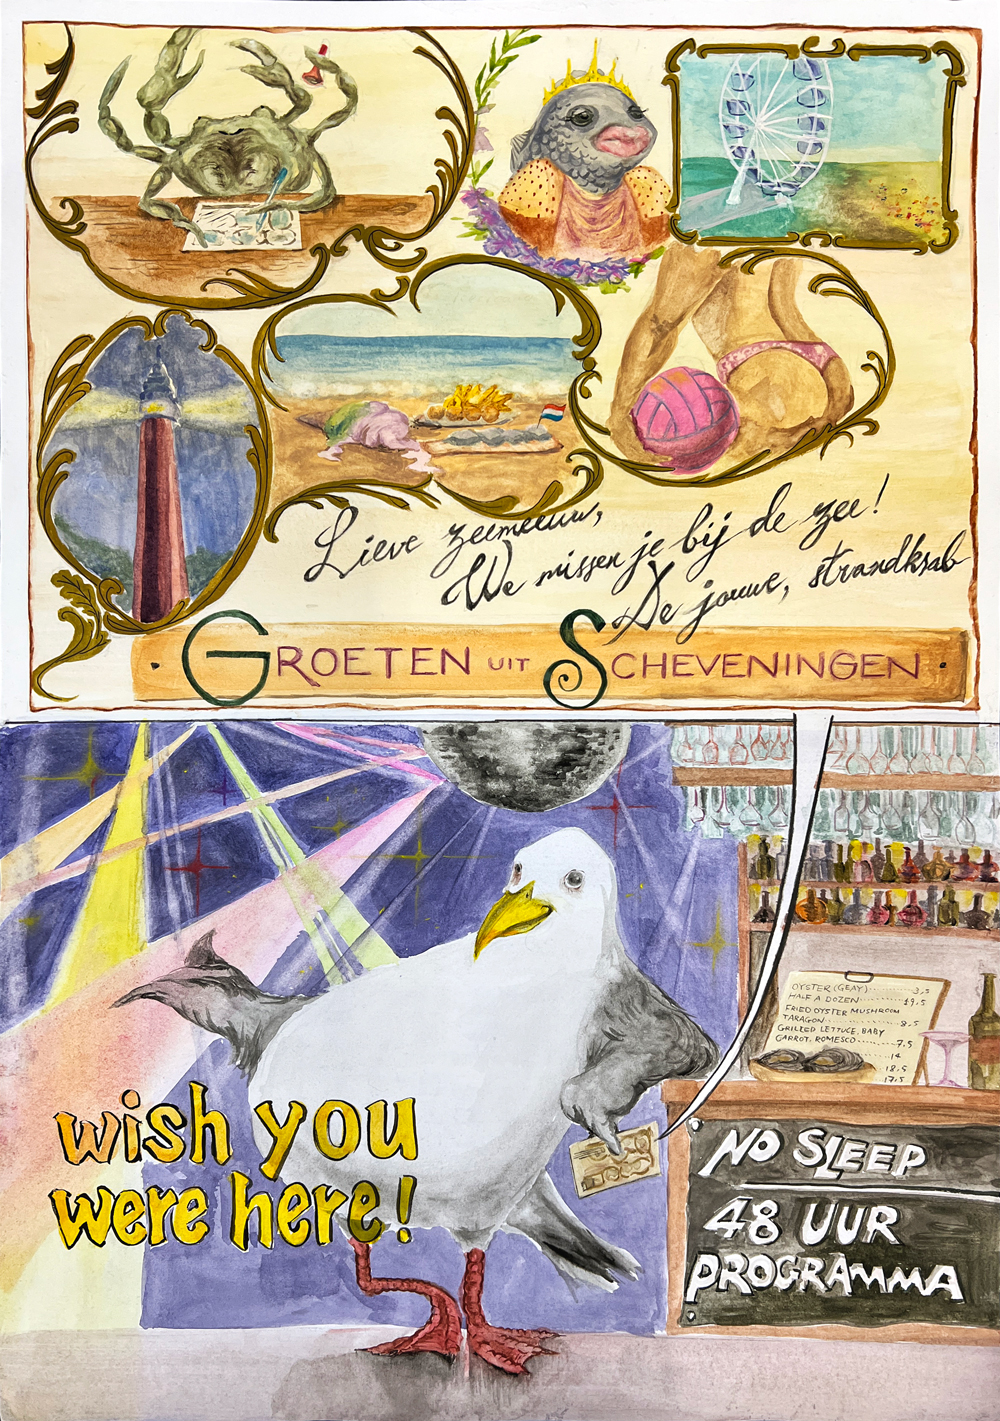 Lieve zeemeeuw,
We missen je bij de zee!
De jouwe, strandkrab
GROETEN UIT SCHEVENINGEN
OYSTER (GEAY) 3,5
HALF A DOZEN 19,5
FRIED OYSTER MUSHROOM
TARAGON 8,5
GRILLED LETTUCE, BABY
CARROT, ROMESCO 7.5
14
18,5
17,5
wish you
were here!
NO SLEEP
48 UUR
PROGRAMMA